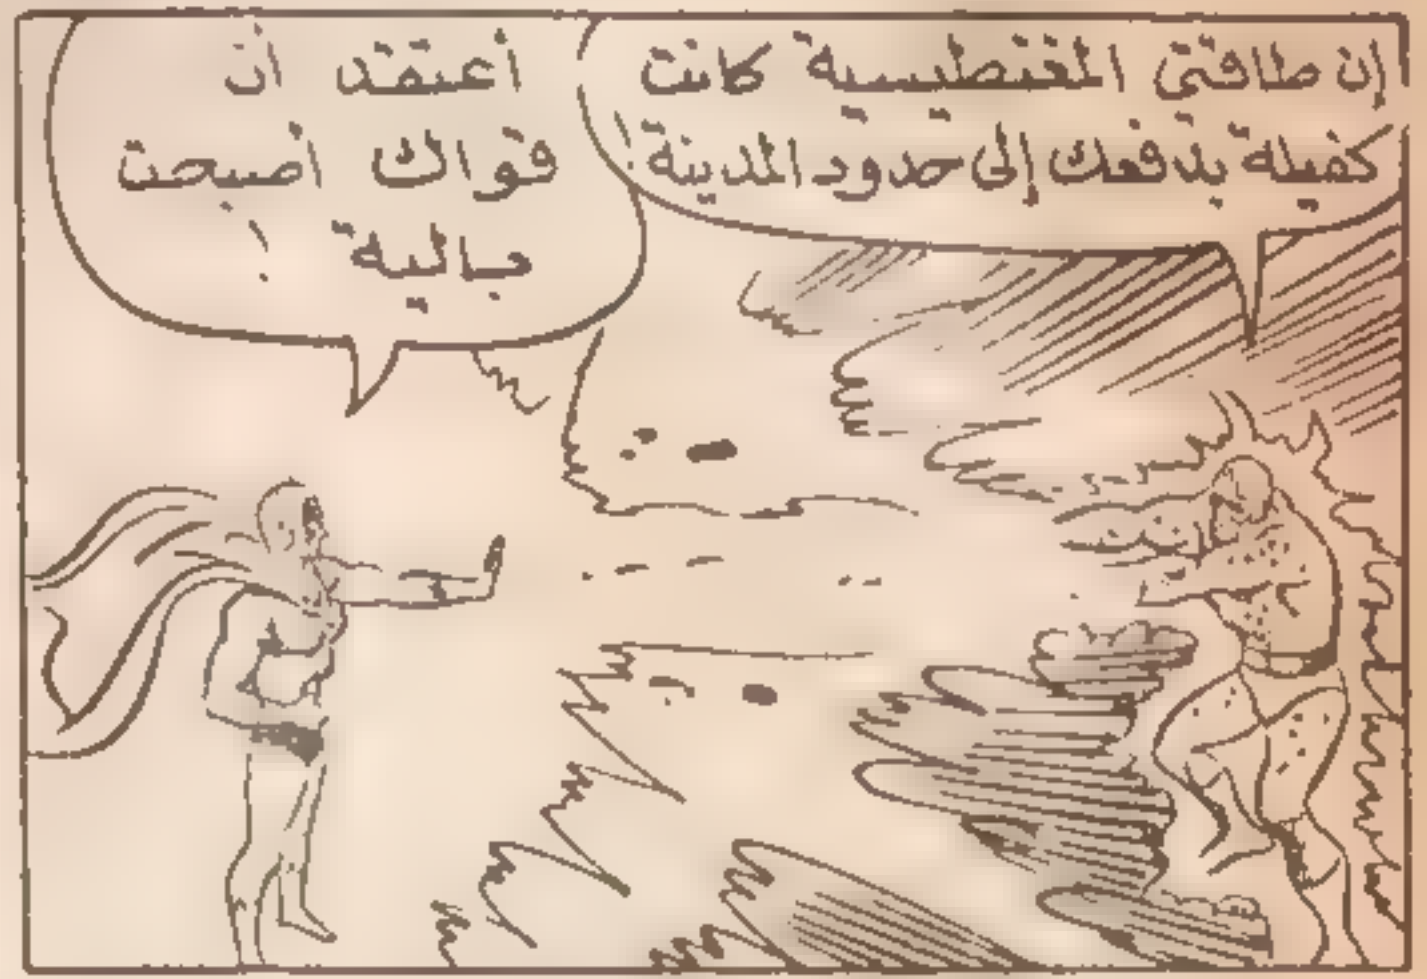 إن طاقتي المغنطيسية كانت
كفيلة بدفعك إلى حدود المدينة!
أعتقد أن
قواك أصبحت
بالية!